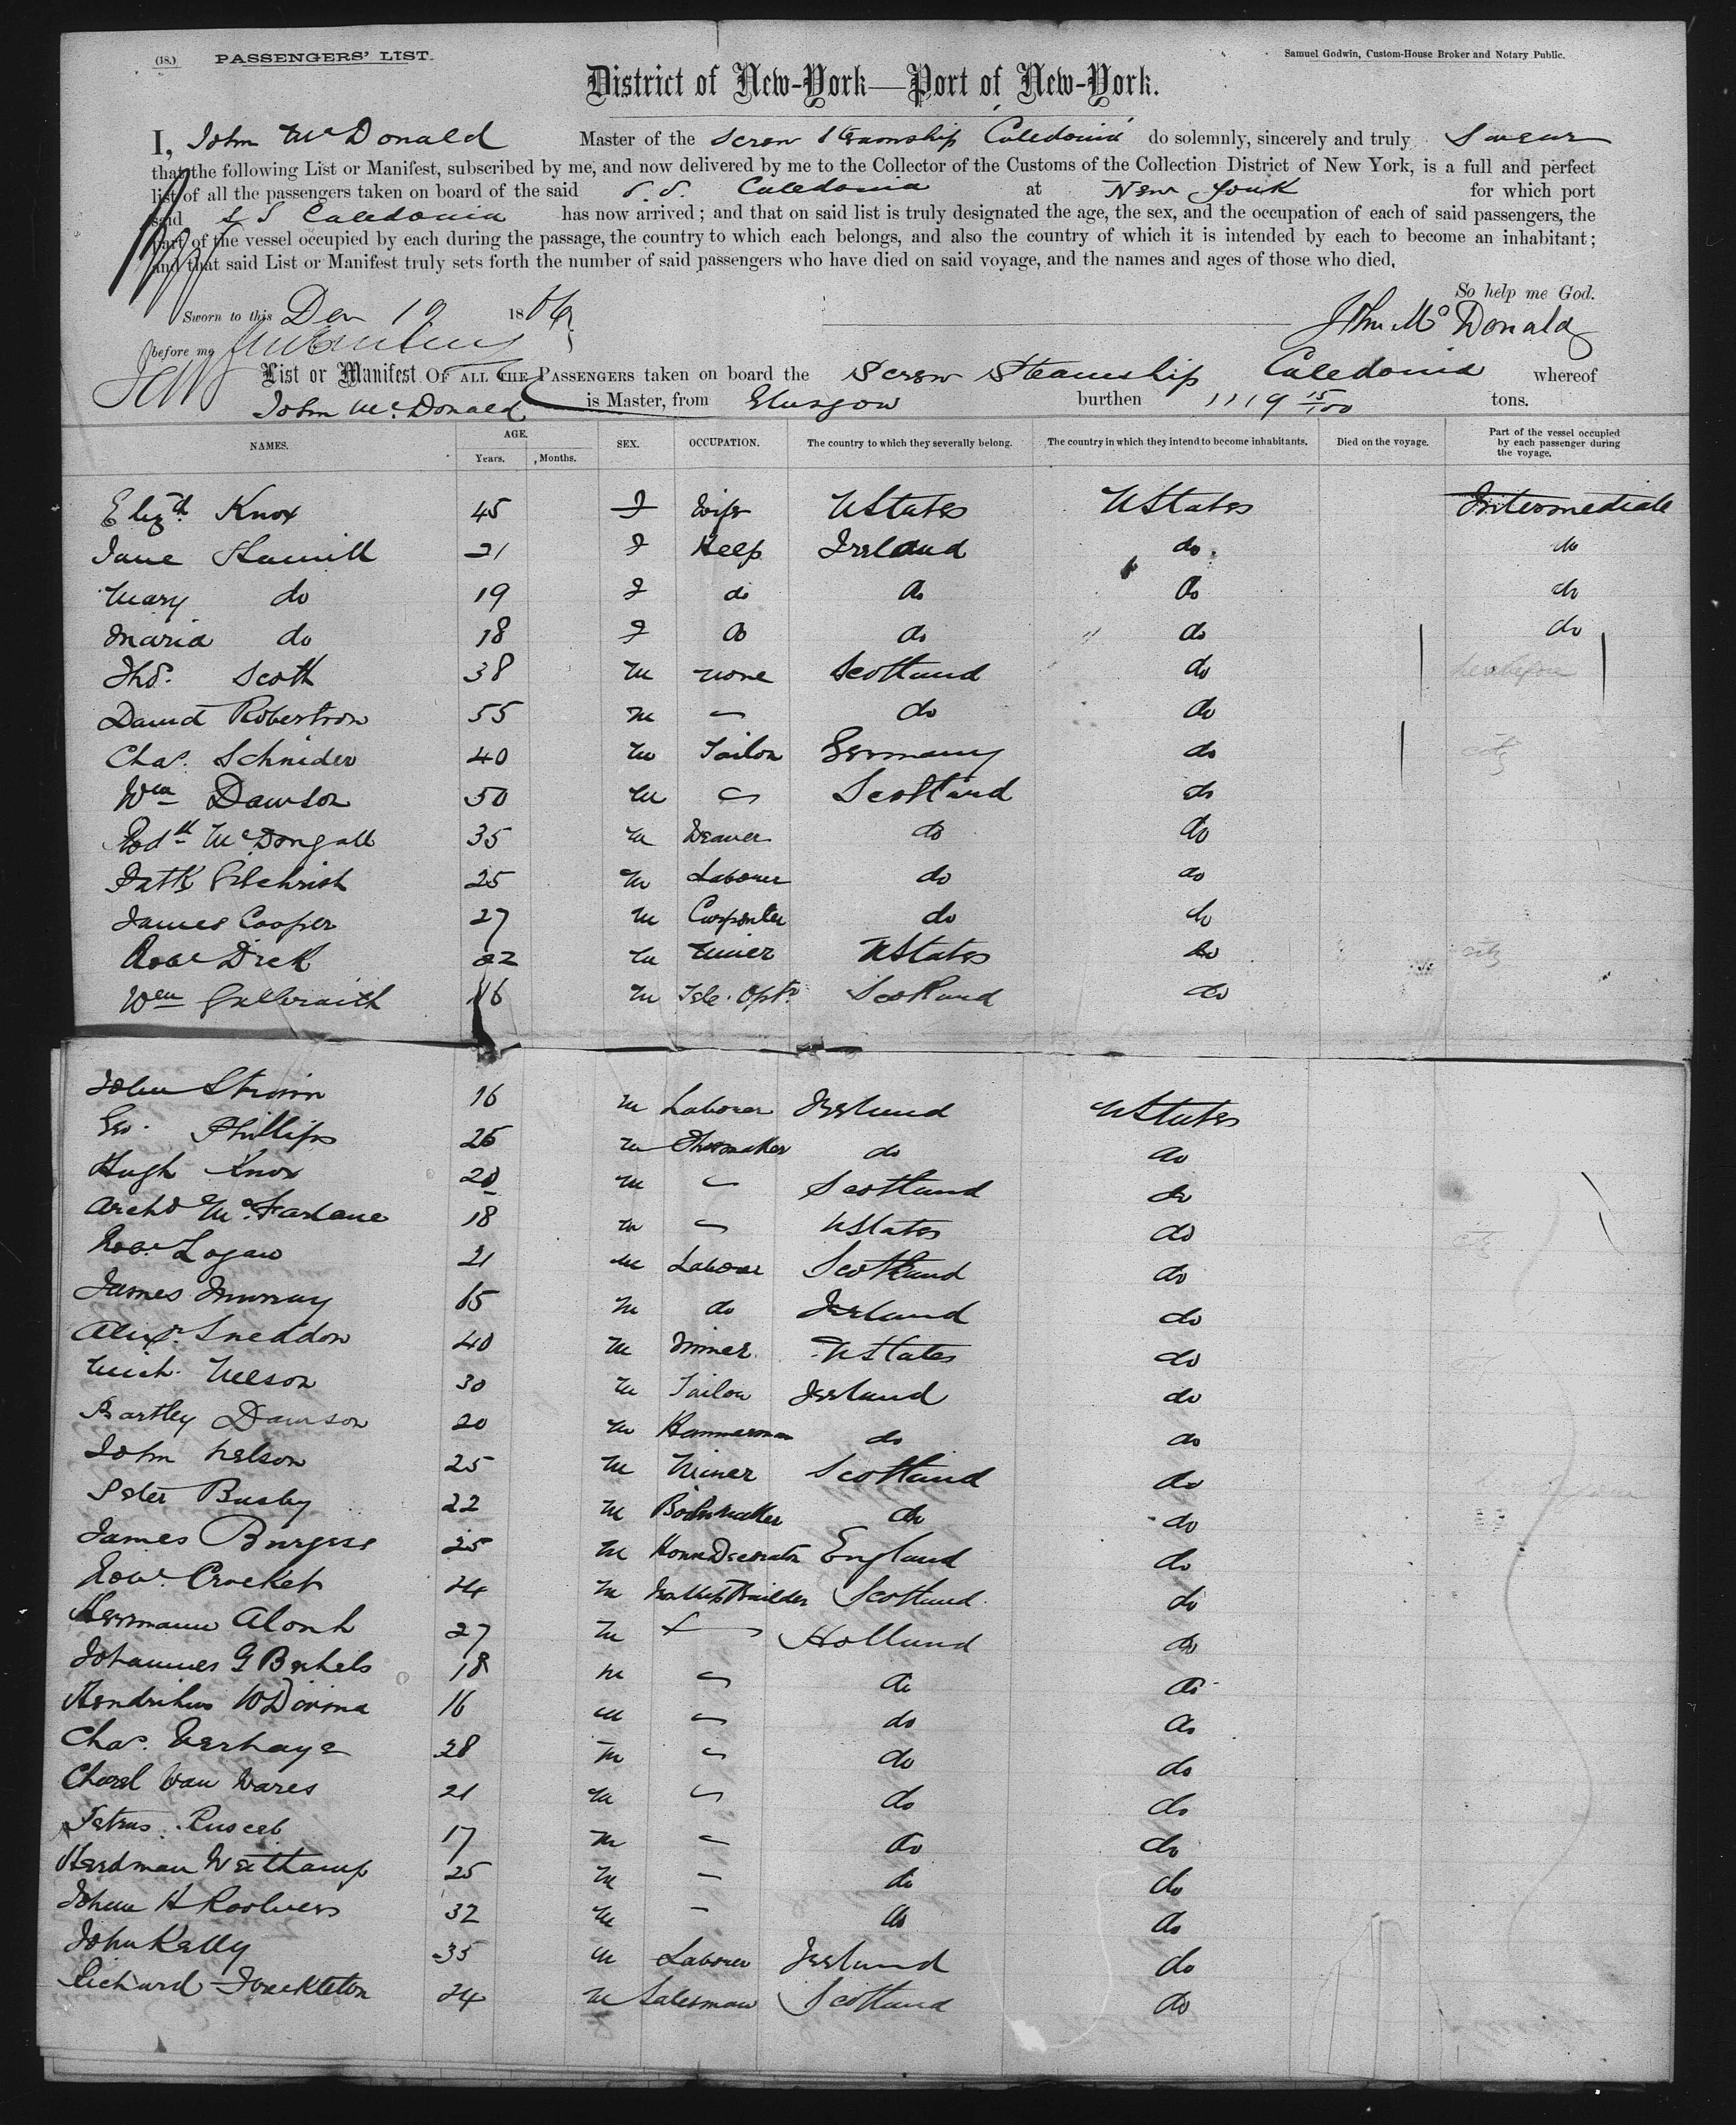 (18.) PASSENGERS' LIST. Samuel Godwin, Custom-House Broker and Notary Public.
District of New-York—Port of New-York.
I, John McDonald Master of the Screw Steamship Caledonia do solemnly, sincerely and truly Swear
that the following List or Manifest, subscribed by me, and now delivered by me to the Collector of the Customs of the Collection District of New York, is a full and perfect
list of all the passengers taken on board of the said S.S. Caledonia at New York for which port
said S S Caledonia has now arrived; and that on said list is truly designated the age, the sex, and the occupation of each of said passengers, the
part of the vessel occupied by each during the passage, the country to which each belongs, and also the country of which it is intended by each to become an inhabitant;
and that said List or Manifest truly sets forth the number of said passengers who have died on said voyage, and the names and ages of those who died.
So help me God.
Sworn to this Dec 19 1866 John McDonald
before me
List or Manifest OF ALL THE PASSENGERS taken on board the Screw Steamship Caledonia whereof
John McDonald is Master, from Glasgow burthen 1119 15/100 tons.
NAMES. AGE. Years. Months. SEX. OCCUPATION. The country to which they severally belong. The country in which they intend to become inhabitants. Died on the voyage. Part of the vessel occupied by each passenger during the voyage.
Elizth Knox 45 F Wife UStates UStates Intermediate
Jane Hamill 21 F Keep Ireland do. do
Mary do 19 F do do do do
Maria do 18 F do do do do
Thos. Scott 38 M none Scotland do
David Robertson 55 M — do do
Chas. Schnider 40 M Tailor Germany do city
Wm Dawson 50 M " Scotland do
Rodk McDougall 35 M Weaver do do
Patk Gilchrist 25 M Laborer do do
James Cooper 27 M Carpenter do do
Robt Dick 22 M Miner UStates do city
Wm Galbraith 16 M Tele. Optr Scotland do
John 16 M Laborer Ireland UStates
Geo. Phillips 26 M Shoemaker do do
Hugh Knox 20 M " Scotland do
Archd McFarlane 18 M " UStates do city
Robt Logan 21 M Laborer Scotland do
James Murray 65 M do Ireland do
Alexr. Sneddon 40 M Miner UStates do
Mich. Nelson 30 M Tailor Ireland do
Bartley Dawson 20 M Hammerman do do
John Nelson 25 M Miner Scotland do
Peter Busby 22 M do do
James Burgess 25 M House Decorator England do
Robt. Crocket 24 M Scotland do
Herrmann 27 M " Holland do
Johannes G 18 M " do do
Hendrikus W 16 M " do do
Chas. Verhaye 28 M " do do
Van Wares 21 M " do do
Petrus 17 M — do do
25 M — do do
H 32 M — do do
John Kelly 35 M Laborer Ireland do
Richard 24 M Salesman Scotland do